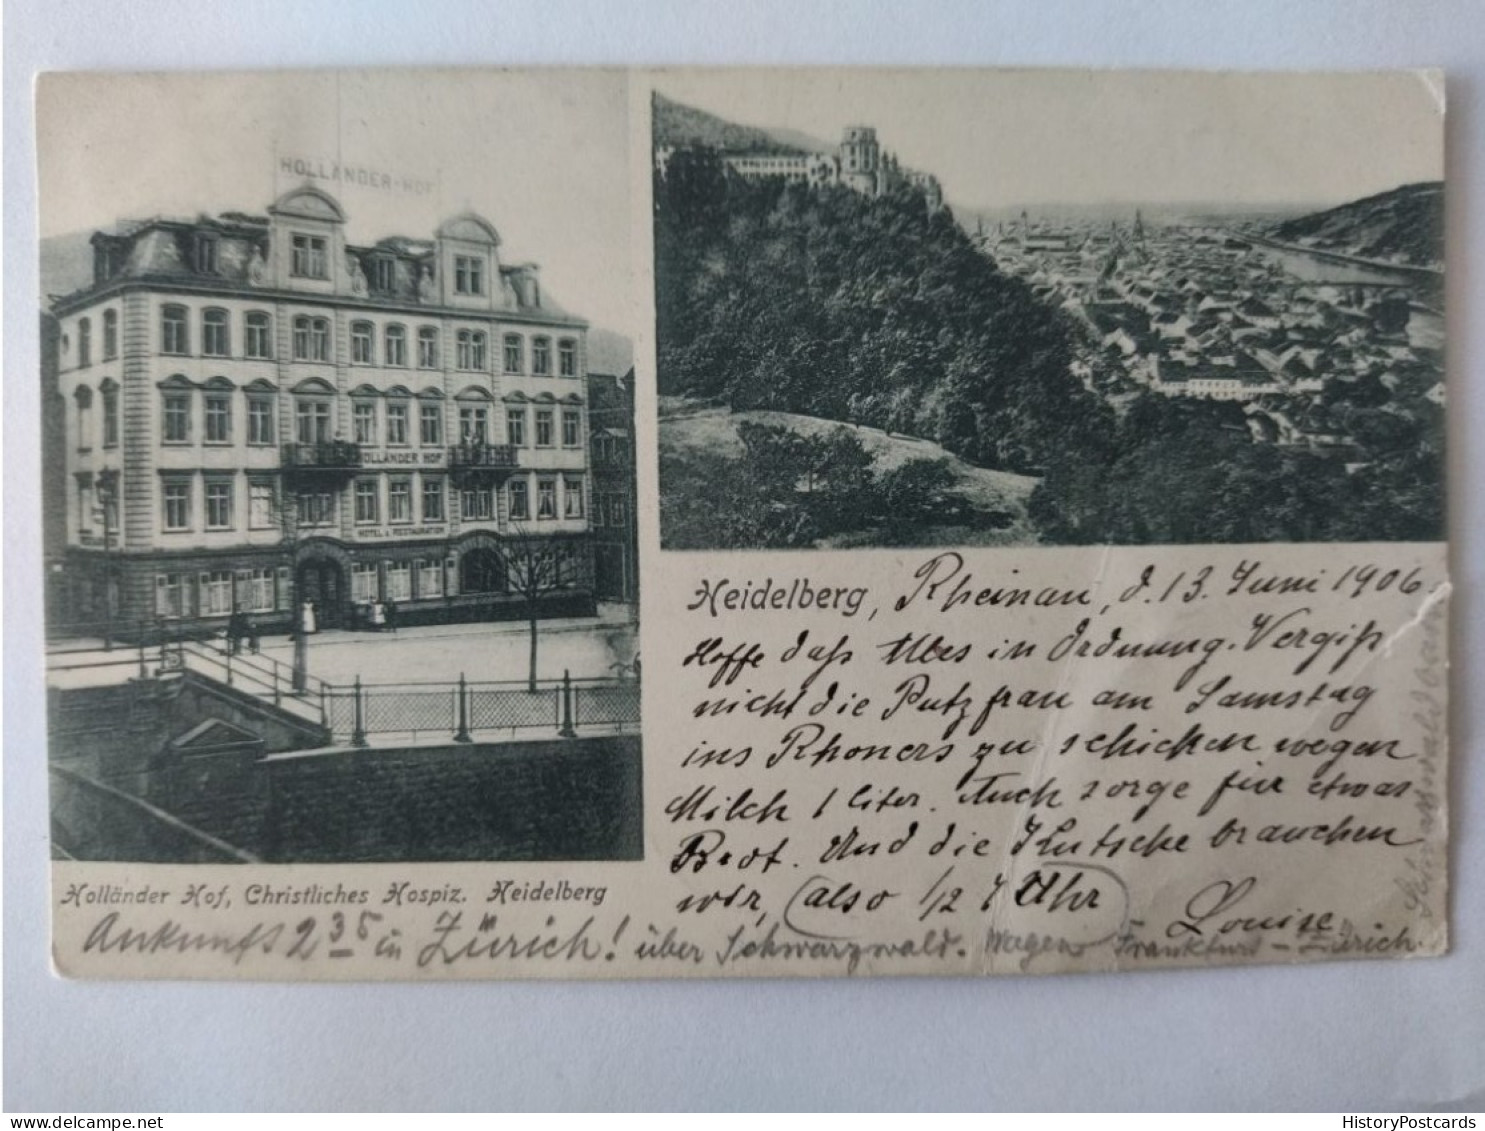 HOLLÄNDER-HOF
HOLLÄNDER HOF
HOTEL & RESTAURATION
Heidelberg, Rheinau, d. 13. Juni 1906.
Hoffe daß Alles in Ordnung. Vergiß
nicht die Putzfrau am Samstag
ins Rhoners zu schicken wegen
Milch 1 liter. Auch sorge für etwas
Brot. Und die Kutsche brauchen
wir, also 1/2 7 Uhr
Louise
Holländer Hof, Christliches Hospiz. Heidelberg
Ankunft 2 35 in Zürich! über Schwarzwald. Wagen Frankfurt - Zürich.
HistoryPostcards
delcampe.net